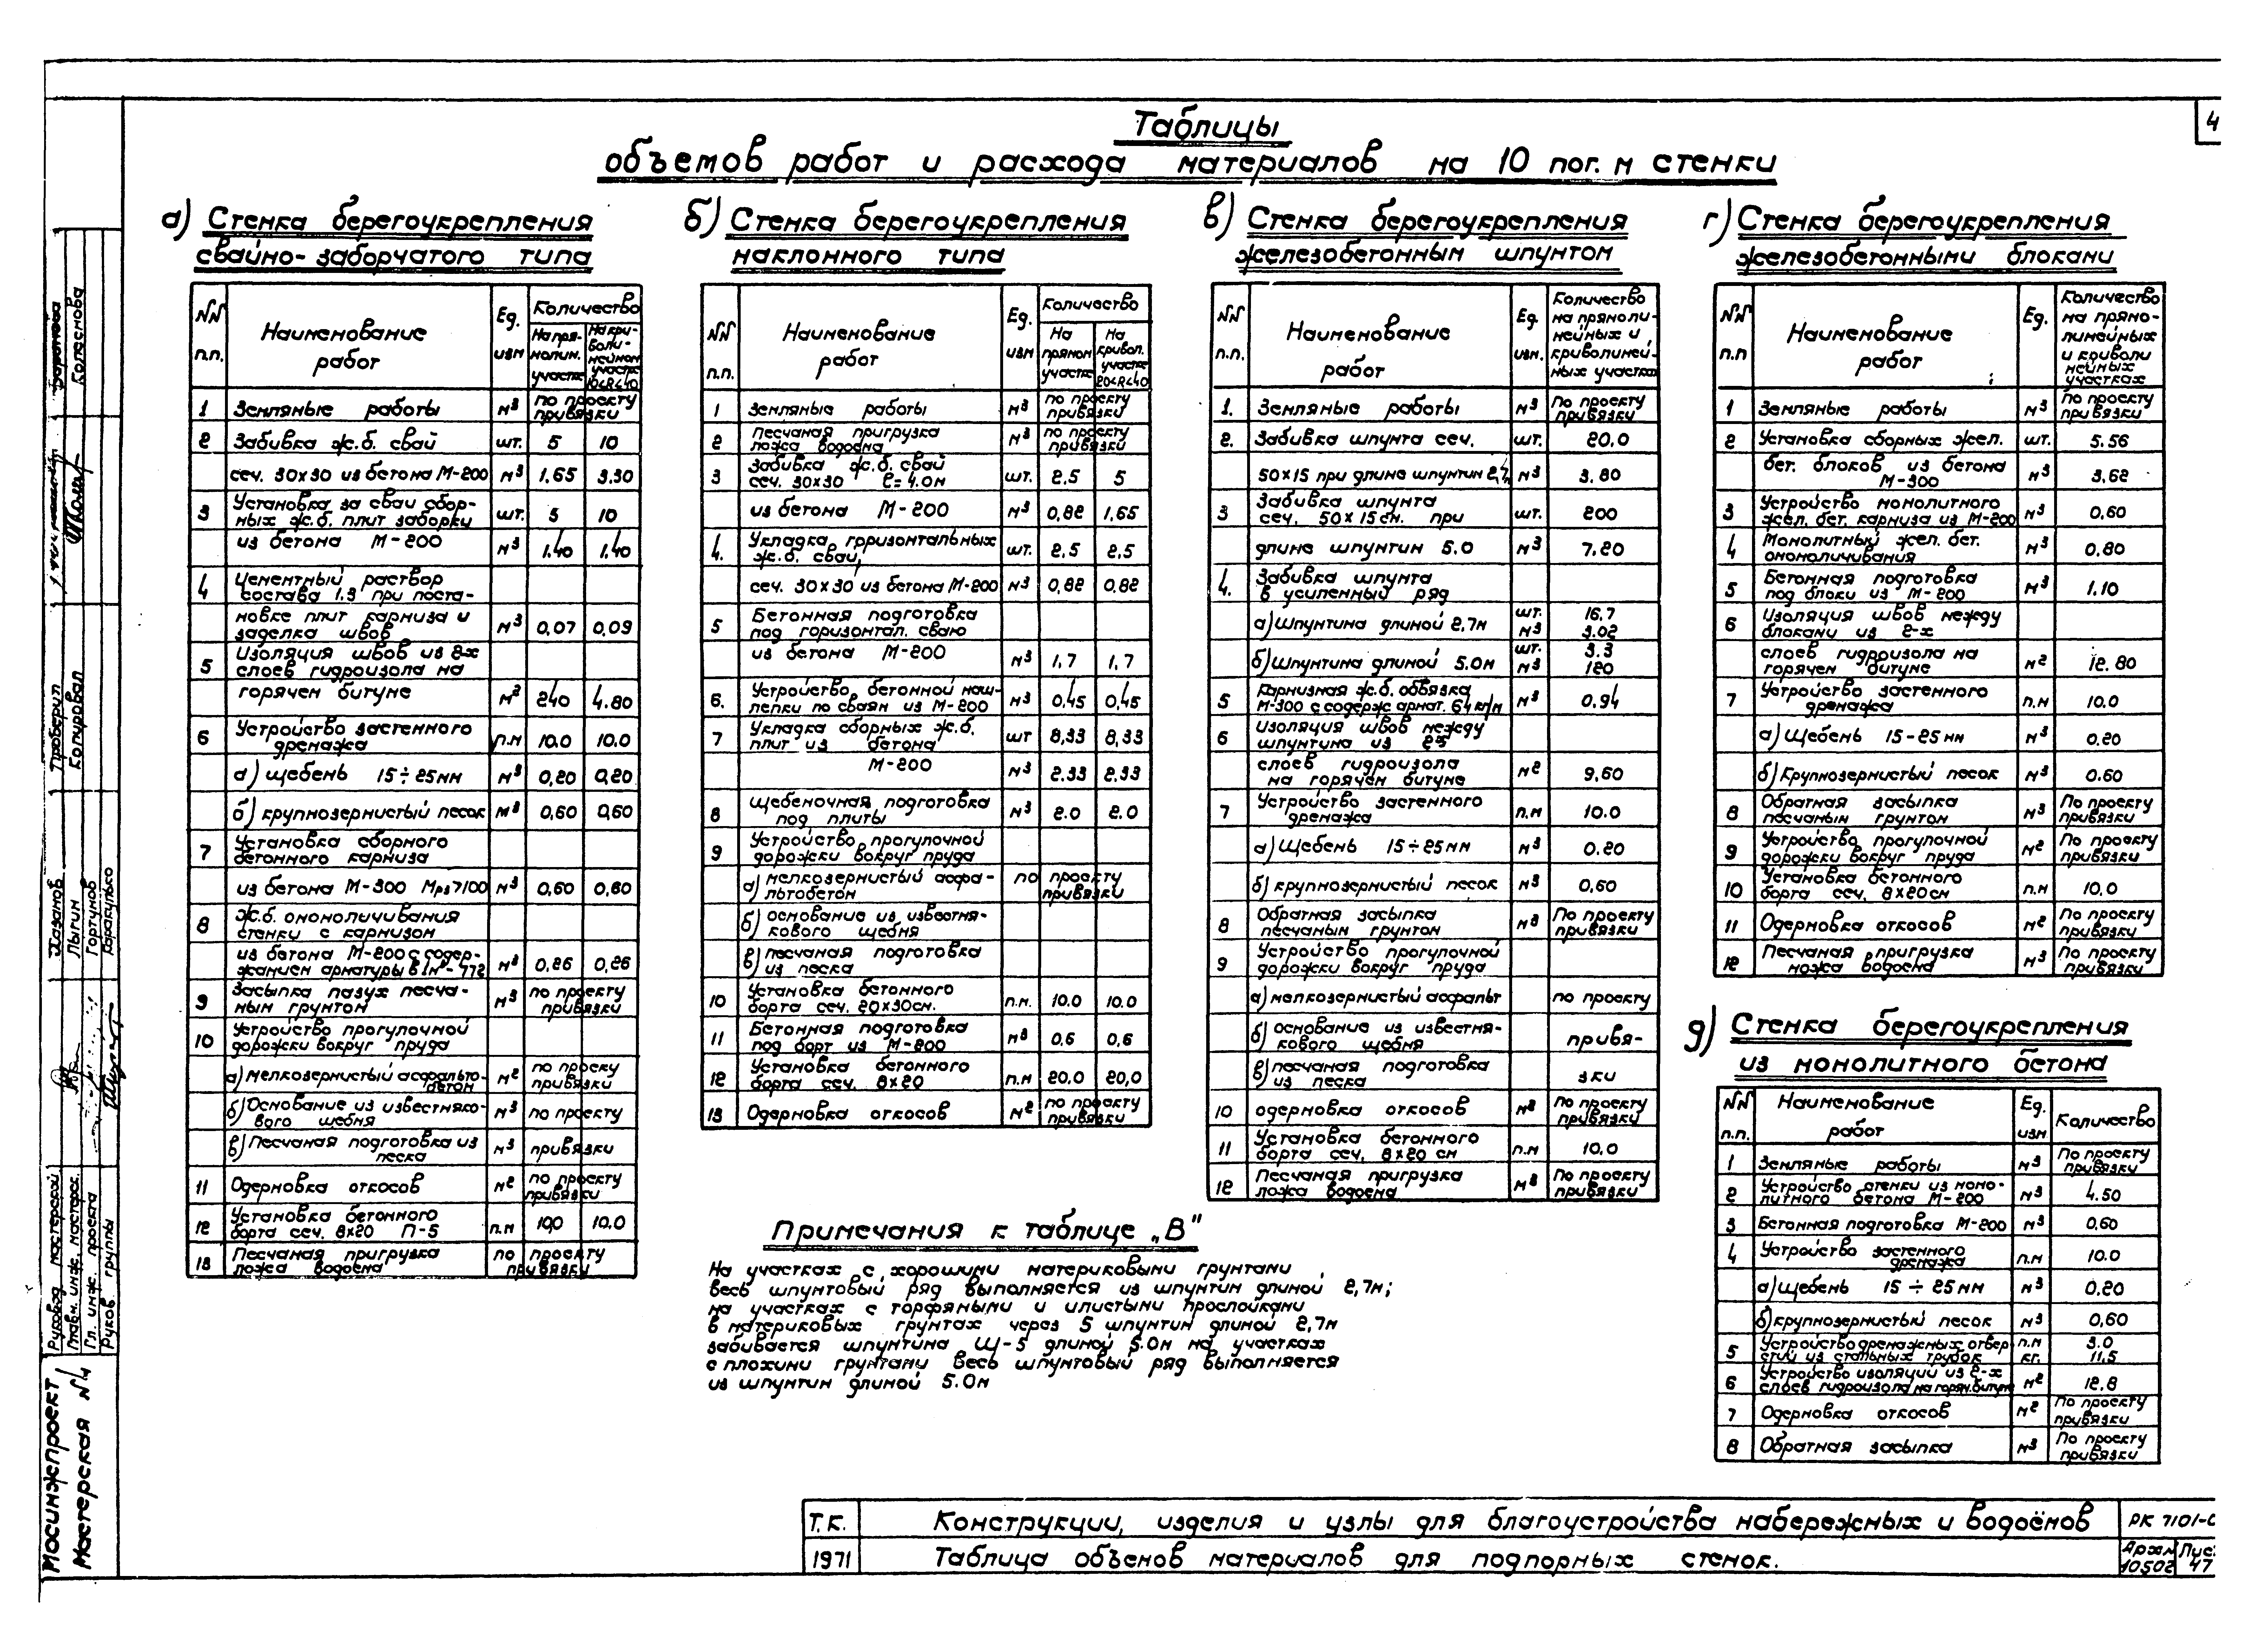 4
Таблицы
объемов работ и расхода материалов на 10 пог. м стенки
а) Стенка берегоукрепления
свайно-заборчатого типа
NN п.п. Наименование работ Ед. изм Количество
На прямолин. участке На криволинейном участке 10<R<40
1 Земляные работы м3 по проекту привязки
2 Забивка ж.б. свай шт. 5 10
сеч. 30х30 из бетона М-200 м3 1.65 3.30
3 Установка за сваи сборных ж.б. плит заборки шт. 5 10
из бетона М-200 м3 1.40 1.40
4 Цементный раствор состава 1:3 при поста-
новке плит карниза и заделка швов м3 0,07 0,09
5 Изоляция швов из 2х слоев гидроизола на
горячем битуме м2 240 4.80
6 Устройство застенного дренажа п.м 10.0 10.0
а) щебень 15÷25мм м3 0,20 0,20
б) крупнозернистый песок м3 0,60 0,60
7 Установка сборного бетонного карниза
из бетона М-300 Мрз 7100 м3 0,60 0,60
8 Ж.б. омоноличивания стенки с карнизом
из бетона М-200 с содержанием арматуры в 1м3-77г м3 0,26 0,26
9 Засыпка пазух песчаным грунтом м3 по проекту привязки
10 Устройство прогулочной дорожки вокруг пруда
а) мелкозернистый асфальтобетон м2 по проекту привязки
б) Основание из известнякового щебня м3 по проекту
в) Песчаная подготовка из песка м3 привязки
11 Одерновка откосов м2 по проекту привязки
12 Установка бетонного борта сеч. 8х20 П-5 п.м 10,0 10.0
13 Песчаная пригрузка ложа водоема по проекту привязки
б) Стенка берегоукрепления
наклонного типа
NN п.п. Наименование работ Ед. изм Количество
На прямом участке На кривол. участке 20<R<40
1 Земляные работы м3 по проекту привязки
2 Песчаная пригрузка ложа водоема м3 по проекту привязки
3 Забивка ж.б. свай сеч. 30х30 l=4.0м шт. 2.5 5
из бетона М-200 м3 0,82 1,65
4. Укладка горизонтальных ж.б. свай, шт. 2.5 2.5
сеч. 30х30 из бетона М-200 м3 0,82 0.82
5 Бетонная подготовка под горизонтал. сваю
из бетона М-200 м3 1,7 1,7
6. Устройство бетонной нашлепки по сваям из М-200 м3 0,45 0,45
7 Укладка сборных ж.б. плит из бетона шт 8,33 8,33
М-200 м3 2.33 2.33
8 Щебеночная подготовка под плиты м3 2.0 2.0
9 Устройство прогулочной дорожки вокруг пруда
а) мелкозернистый асфальтобетон по проекту привязки
б) основание из известнякового щебня
в) песчаная подготовка из песка
10 Установка бетонного борта сеч. 20х30см. п.м. 10.0 10.0
11 Бетонная подготовка под борт из М-200 м3 0,6 0,6
12 Установка бетонного борта сеч. 8х20 п.м 20.0 20,0
13 Одерновка откосов м2 по проекту привязки
в) Стенка берегоукрепления
железобетонным шпунтом
NN п.п. Наименование работ Ед. изм. Количество на прямолинейных и криволинейных участках
1. Земляные работы м3 По проекту привязки
2. Забивка шпунта сеч. шт. 20.0
50х15 при длине шпунтин 2,7 м3 3.80
3 Забивка шпунта сеч. 50х15см. при шт. 200
длине шпунтин 5.0 м3 7.20
4. Забивка шпунта в усиленный ряд
а) Шпунтина длиной 2,7м шт. 16.7 м3 3.02
б) Шпунтина длиной 5.0м шт. 3.3 м3 120
5 Карнизная ж.б. обвязка М-300 с содерж армат. 64 кг/м м3 0.94
6 Изоляция швов между шпунтина из 2х
слоев гидроизола на горячем битуме м2 9,60
7 Устройство застенного дренажа п.м 10.0
а) Щебень 15÷25мм м3 0.20
б) крупнозернистый песок м3 0,60
8 Обратная засыпка песчаным грунтом м3 По проекту привязки
9 Устройство прогулочной дорожки вокруг пруда
а) мелкозернистый асфальт по проекту
б) основание из известнякового щебня привя-
в) песчаная подготовка из песка зки
10 одерновка откосов м2 По проекту привязки
11 Установка бетонного борта сеч. 8х20 см п.м 10.0
12 Песчаная пригрузка ложа водоема м3 По проекту привязки
г) Стенка берегоукрепления
железобетонными блоками
NN п.п Наименование работ Ед. изм. Количество на прямолинейных и криволинейных участках
1 Земляные работы м3 По проекту привязки
2 Установка сборных жел. шт. 5.56
бет. блоков из бетона М-300 м3 3,62
3 Устройство монолитного жел. бет. карниза из М-200 м3 0,60
4 Монолитный жел. бет. омоноличивания м3 0,80
5 Бетонная подготовка под блоки из М-200 м3 1.10
6 Изоляция швов между блоками из 2-х
слоев гидроизола на горячем битуме м2 12.80
7 Устройство застенного дренажа п.м 10.0
а) Щебень 15-25мм м3 0.20
б) Крупнозернистый песок м3 0.60
8 Обратная засыпка песчаным грунтом м3 По проекту привязки
9 Устройство прогулочной дорожки вокруг пруда м2 По проекту привязки
10 Установка бетонного борта сеч. 8х20см п.м 10.0
11 Одерновка откосов м2 По проекту привязки
12 Песчаная пригрузка ложа водоема м3 По проекту привязки
д) Стенка берегоукрепления
из монолитного бетона
NN п.п. Наименование работ Ед. изм Количество
1 Земляные работы м3 По проекту привязки
2 Устройство стенки из монолитного бетона М-200 м3 4.50
3 Бетонная подготовка М-200 м3 0,60
4 Устройство застенного дренажа п.м 10.0
а) щебень 15÷25мм м3 0.20
б) крупнозернистый песок м3 0,60
5 Устройство дренажных отверстий из стальных трубок п.м 3.0 кг. 11,5
6 Устройство изоляции из 2-х слоев гидроизола на горяч. битуме м2 12.8
7 Одерновка откосов м2 По проекту привязки
8 Обратная засыпка м3 По проекту привязки
Примечания к таблице „В"
На участках с хорошими материковыми грунтами
весь шпунтовый ряд выполняется из шпунтин длиной 2,7м;
на участках с торфяными и илистыми прослойками
в материковых грунтах через 5 шпунтин длиной 2,7м
забивается шпунтина Щ-5 длиной 5.0м на участках
с плохими грунтами весь шпунтовый ряд выполняется
из шпунтин длиной 5.0м
Т.К. Конструкции, изделия и узлы для благоустройства набережных и водоёмов РК 7101-
1971 Таблица объемов материалов для подпорных стенок. Арх.N 10502 Лис. 47
Мосинжпроект
Мастерская N4
Руковод мастерской Хазанов
Главн. инж. мастерс. Лыгин
Гл. инж. проекта Гортунов
Руков группы Каракулько
Проверил
Копировал Колоснова